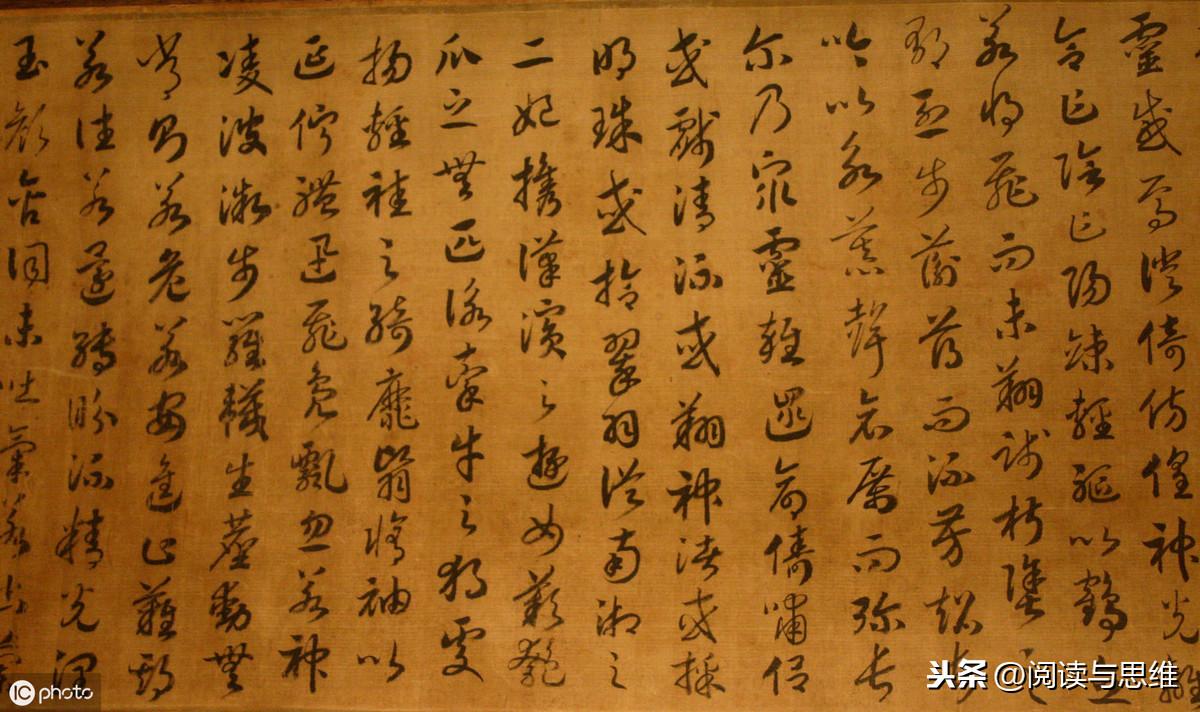 靈感焉徙倚彷徨神光離
合乍陰乍陽竦輕軀以鶴立
若將飛而未翔踐椒塗之
郁烈步蘅薄而流芳超長
吟以永慕聲哀厲而彌長
尔乃衆靈雜遝命儔嘯侶
或戲清流或翔神渚或採
明珠或拾翠羽從南湘之
二妃攜漢濱之遊女歎匏
瓜之無匹詠牽牛之獨處
揚輕袿之綺靡翳脩袖以
延佇體迅飛鳧飄忽若神
凌波微步羅襪生塵動無
常則若危若安進止難期
若往若還轉眄流精光潤
玉顏含詞未吐氣若幽蘭
iC photo
头条 @阅读与思维